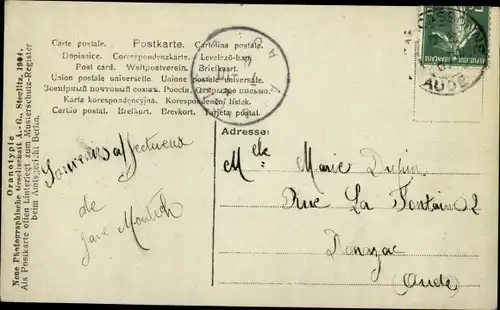 Carte postale. Postkarte. Cartolina postale.
Dopisnice. Correspondenzkarte. Levelező-kap.
Post card. Weltpostverein. Briefkaart.
Union postale universelle. Unione postale universale.
Всемірный почтовый союзъ. Россія. Открытое письмо.
Karta korespondencyjna. Korespondenční lístek.
Cartão postal. Brefkort. Brevkort. Tarjeta postal.
AUDE
Adresse:
Melle Marie Dupin
Rue La Fontaine 2
(Aude)
Souvenirs affectueux
de
Oranotypie
Neue Photographische Gesellschaft A.-G., Steglitz, 1904.
Als Postkarte offen hinterlegt zum Musterschutz-Register
beim Amtsgericht Berlin.